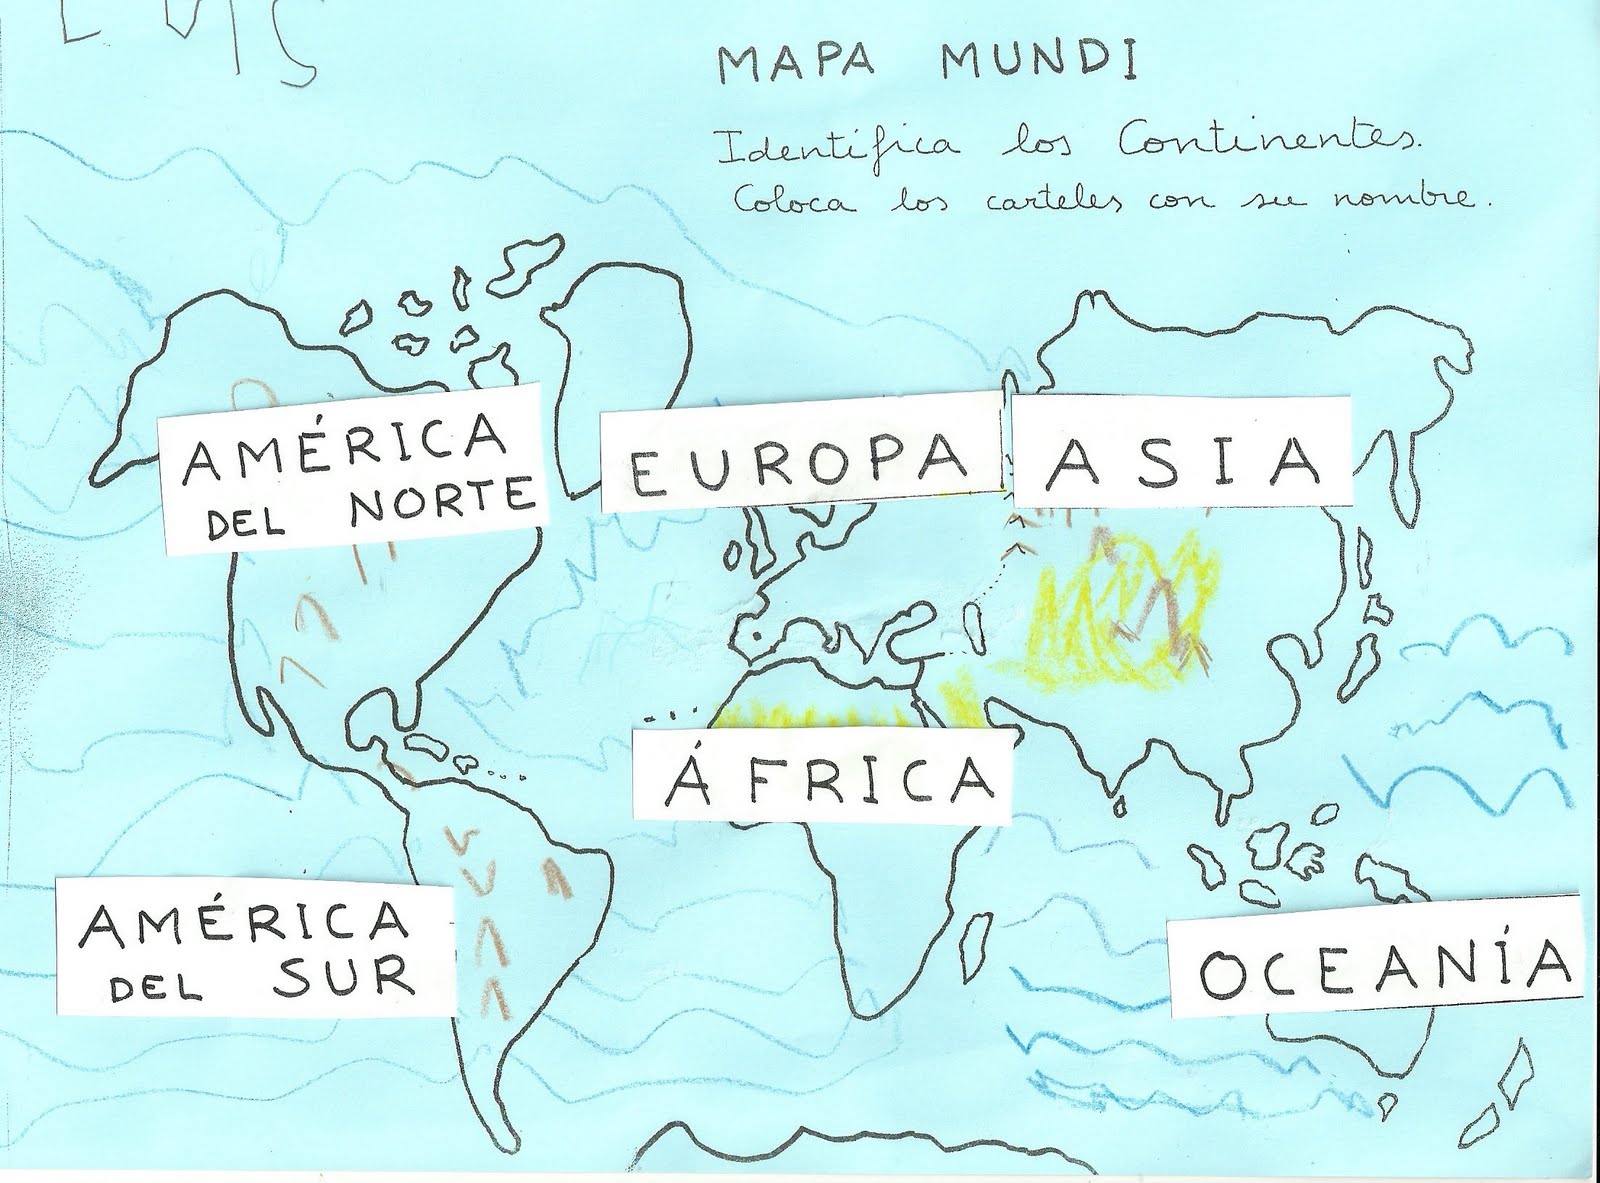 MAPA MUNDI
Identifica los Continentes.
Coloca los carteles con su nombre.
AMÉRICA
DEL NORTE
EUROPA
ASIA
ÁFRICA
AMÉRICA
DEL SUR
OCEANÍA